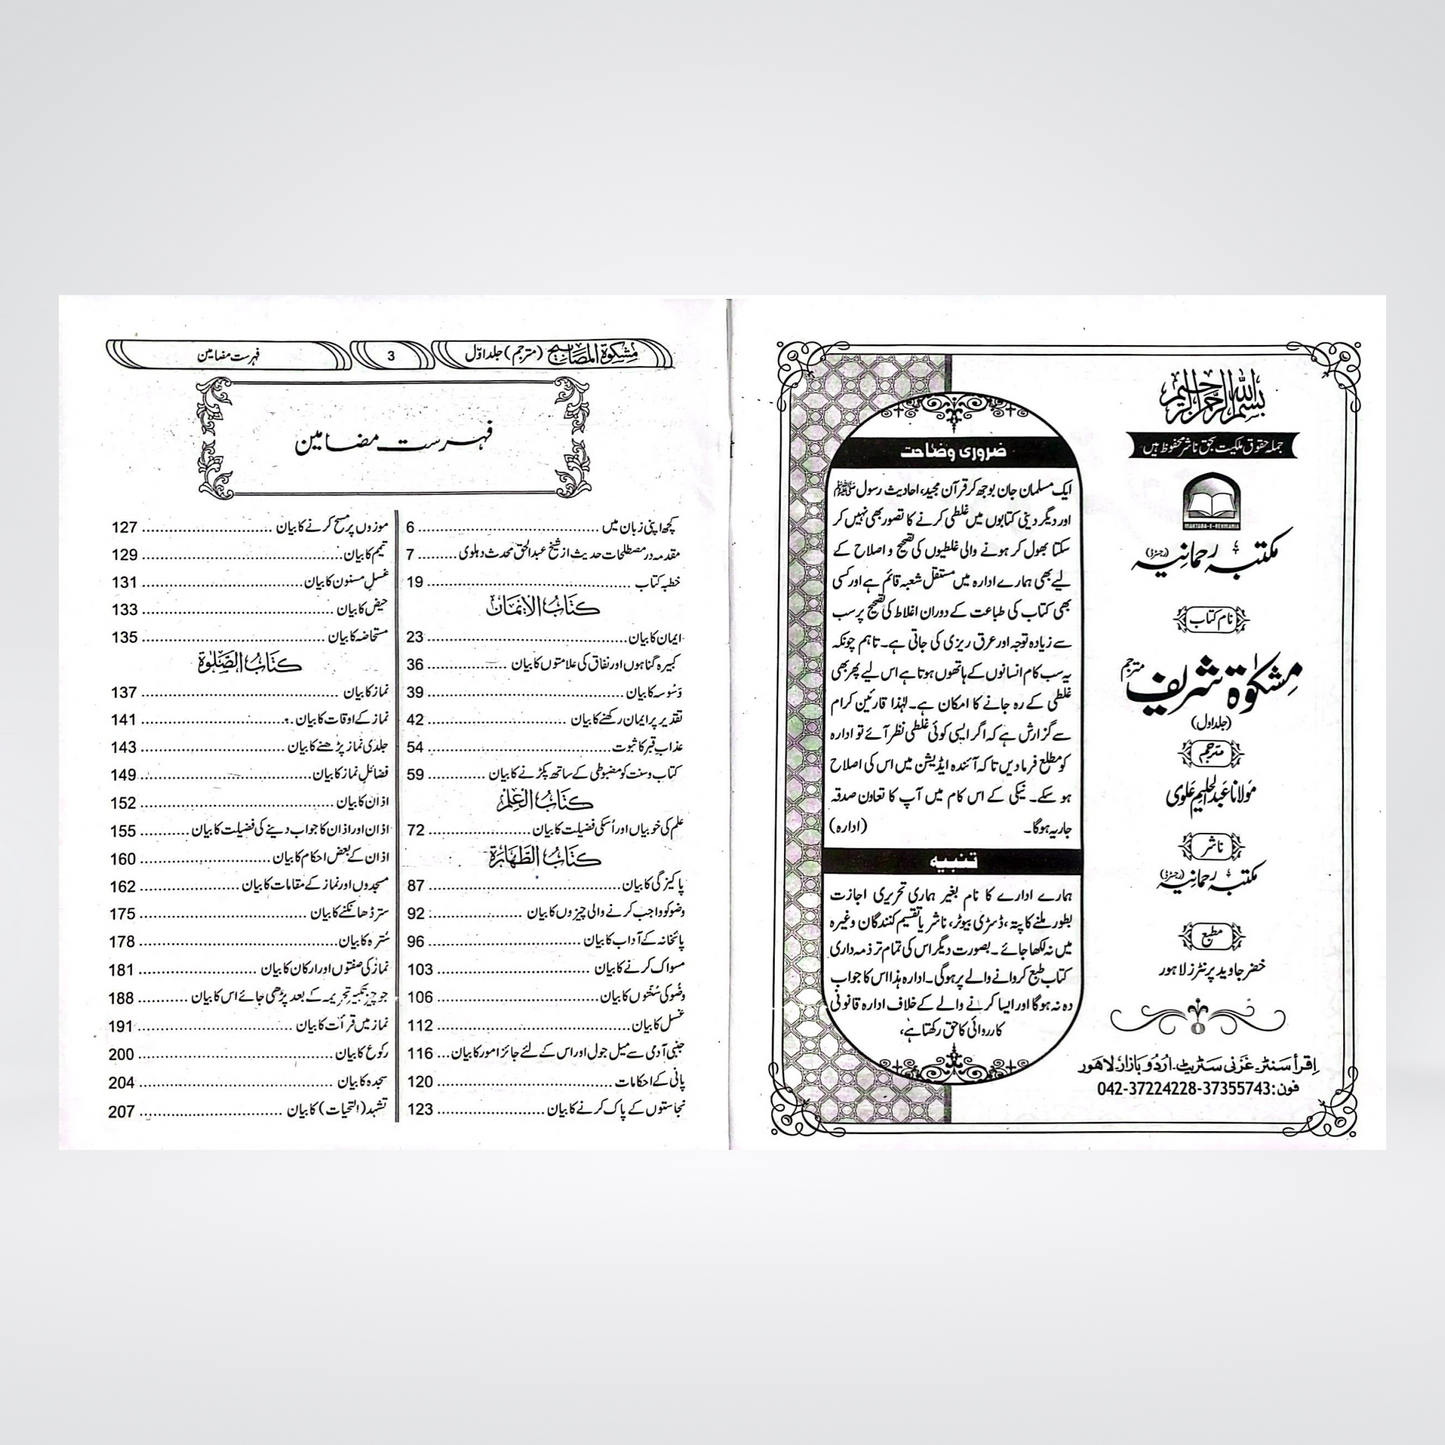 بسم الله الرحمن الرحیم
جملہ حقوق ملکیت بحق ناشر محفوظ ہیں
MAKTABA-E-REHMANIA
مکتبہ رحمانیہ (رجسٹرڈ)
نام کتاب
مشکوٰۃ شریف مترجم
(جلد اول)
مترجم
مولانا عبدالحلیم علوی
ناشر
مکتبہ رحمانیہ (رجسٹرڈ)
مطبع
خضر جاوید پرنٹرز لاہور
اِقرأ سنٹر۔ غزنی سٹریٹ۔ اُردو بازار۔ لاہور
فون: 042-37224228-37355743
ضروری وضاحت
ایک مسلمان جان بوجھ کر قرآن مجید، احادیث رسول ﷺ
اور دیگر دینی کتابوں میں غلطی کرنے کا تصور بھی نہیں کر
سکتا بھول کر ہونے والی غلطیوں کی تصحیح و اصلاح کے
لیے بھی ہمارے ادارہ میں مستقل شعبہ قائم ہے اور کسی
بھی کتاب کی طباعت کے دوران اغلاط کی تصحیح پر سب
سے زیادہ توجہ اور عرق ریزی کی جاتی ہے۔ تاہم چونکہ
یہ سب کام انسانوں کے ہاتھوں ہوتا ہے اس لیے پھر بھی
غلطی کے رہ جانے کا امکان ہے۔ لہٰذا قارئین کرام
سے گزارش ہے کہ اگر ایسی کوئی غلطی نظر آئے تو ادارہ
کو مطلع فرما دیں تاکہ آئندہ ایڈیشن میں اس کی اصلاح
ہو سکے۔ نیکی کے اس کام میں آپ کا تعاون صدقہ
جاریہ ہوگا۔ (ادارہ)
تنبیہ
ہمارے ادارے کا نام بغیر ہماری تحریری اجازت
بطور ملنے کا پتہ، ڈسٹری بیوٹر، ناشر یا تقسیم کنندگان وغیرہ
میں نہ لکھا جائے۔ بصورت دیگر اس کی تمام تر ذمہ داری
کتاب طبع کروانے والے پر ہوگی۔ ادارہ ہذا اس کا جواب
دہ نہ ہوگا اور ایسا کرنے والے کے خلاف ادارہ قانونی
کارروائی کا حق رکھتا ہے،
مشکوٰۃ المصابیح (مترجم) جلد اوّل
3
فہرست مضامین
فہرست مضامین
کچھ اپنی زبان میں 6
مقدمہ در مصطلحات حدیث از شیخ عبدالحق محدث دہلوی 7
خطبہ کتاب 19
کتاب الایمان
ایمان کا بیان 23
کبیرہ گناہوں اور نفاق کی علامتوں کا بیان 36
وَسْوسہ کا بیان 39
تقدیر پر ایمان رکھنے کا بیان 42
عذاب قبر کا ثبوت 54
کتاب و سنت کو مضبوطی کے ساتھ پکڑنے کا بیان 59
کتاب العلم
علم کی خوبیاں اور اُسکی فضیلت کا بیان 72
کتاب الطہارۃ
پاکیزگی کا بیان 87
وضو کو واجب کرنے والی چیزوں کا بیان 92
پائخانہ کے آداب کا بیان 96
مسواک کرنے کا بیان 103
وضو کی سُنتوں کا بیان 106
غسل کا بیان 112
جنبی آدمی سے میل جول اور اس کے لئے جائز امور کا بیان 116
پانی کے احکامات 120
نجاستوں کے پاک کرنے کا بیان 123
موزوں پر مسح کرنے کا بیان 127
تیمم کا بیان 129
غسلِ مسنون کا بیان 131
حیض کا بیان 133
مستحاضہ کا بیان 135
کتاب الصلوٰۃ
نماز کا بیان 137
نماز کے اوقات کا بیان 141
جلدی نماز پڑھنے کا بیان 143
فضائلِ نماز کا بیان 149
اذان کا بیان 152
اذان اور اذان کا جواب دینے کی فضیلت کا بیان 155
اذان کے بعض احکام کا بیان 160
مسجدوں اور نماز کے مقامات کا بیان 162
ستر ڈھانکنے کا بیان 175
سُترہ کا بیان 178
نماز کی صفتوں اور ارکان کا بیان 181
جو چیز تکبیر تحریمہ کے بعد پڑھی جائے اس کا بیان 188
نماز میں قرأت کا بیان 191
رکوع کا بیان 200
سجدہ کا بیان 204
تشہد (التحیات) کا بیان 207